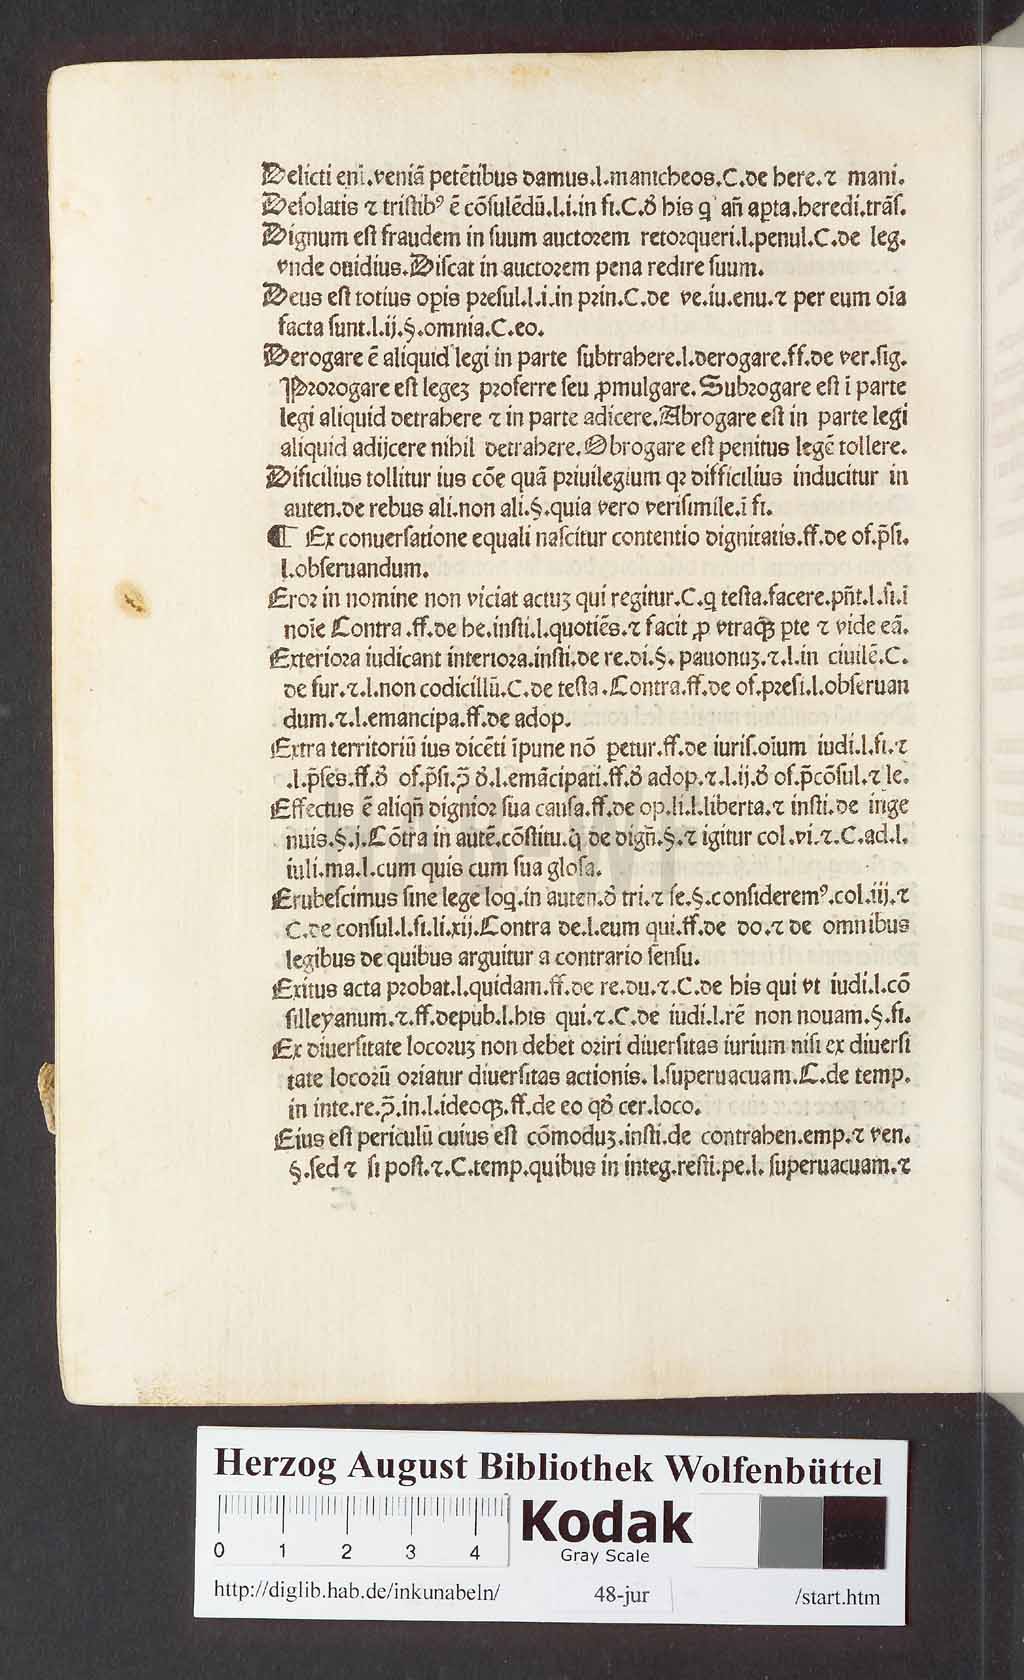 Delicti eni̅.veniā petētibus damus.l.manicheos.C.de here.⁊ mani.
Desolatis ⁊ tristibꝰ ē cōsulēdū.l.i.in fi.C.ð his q an̄ apta.heredi.trās.
Dignum est fraudem in suum auctorem retorqueri.l.penul.C.de leg.
vnde ouidius.Discat in auctorem pena redire suum.
Deus est totius opis presul.l.i.in prin.C.de ve.iu.enu.⁊ per eum oīa
facta sunt.l.ij.§.omnia.C.eo.
Derogare ē aliquid legi in parte subtrahere.l.derogare.ff.de ver.sig.
Prorogare est legeꝫ proferre seu ꝓmulgare.Subrogare est ī parte
legi aliquid detrahere ⁊ in parte adicere.Abrogare est in parte legi
aliquid adijcere nihil detrahere.Obrogare est penitus legē tollere.
Dificilius tollitur ius cōe quā priuilegium qꝛ difficilius inducitur in
auten.de rebus ali.non ali.§.quia vero verisimile.ī fi.
¶ Ex conuersatione equali nascitur contentio dignitatis.ff.de of.p̄si.
l.obseruandum.
Eror in nomine non viciat actuꝫ qui regitur.C.q testa.facere.pn̄t.l.si.ī
noīe Contra.ff.de he.insti.l.quotiēs.⁊ facit ꝓ vtraqꝫ ꝑte ⁊ vide eā.
Exteriora iudicant interiora.insti.de re.di.§.pauonuꝫ.⁊.l.in ciuilē.C.
de fur.⁊.l.non codicillū.C.de testa.Contra.ff.de of.presi.l.obseruan
dum.⁊.l.emancipa.ff.de adop.
Extra territoriū ius dicēti īpune nō petur.ff.de iuris.oīum iudi.l.fi.⁊
.l.p̄ses.ff.ð of.p̄si.ꝓ̄ ð.l.emācipati.ff.ð adop.⁊.l.ij.ð of.p̄cōsul.⁊ le.
Effectus ē aliqn̄ dignior sua causa.ff.de op.li.l.liberta.⁊ insti.de inge
nuis.§.j.Cōtra in autē.cōstitu.q̇ de dign̄.§.⁊ igitur col.vi.⁊.C.ad.l.
iuli.ma.l.cum quis cum sua glosa.
Erubescimus sine lege loq.in auten.ð tri.⁊ se.§.consideremꝰ.col.iij.⁊
C.de consul.l.fi.li.xij.Contra de.l.eum qui.ff.de do.⁊ de omnibus
legibus de quibus arguitur a contrario sensu.
Exitus acta probat.l.quidam.ff.de re.du.⁊.C.de his qui vt iudi.l.cō
silleyanum.⁊.ff.depub.l.his qui.⁊.C.de iudi.l.rē non nouam.§.fi.
Ex diuersitate locoruꝫ non debet oriri diuersitas iurium nisi ex diuersi
tate locorū oriatur diuersitas actionis.l.superuacuam.C.de temp.
in inte.re.ꝓ̄.in.l.ideoqꝫ.ff.de eo qð cer.loco.
Eius est periculū cuius est cōmoduꝫ.insti.de contrahen.emp.⁊ ven.
§.sed ⁊ si post.⁊.C.temp.quibus in integ.resti.pe.l.superuacuam.⁊
HAB WF
Herzog August Bibliothek Wolfenbüttel
0 1 2 3 4
Kodak
Gray Scale
http://diglib.hab.de/inkunabeln/ 48-jur /start.htm